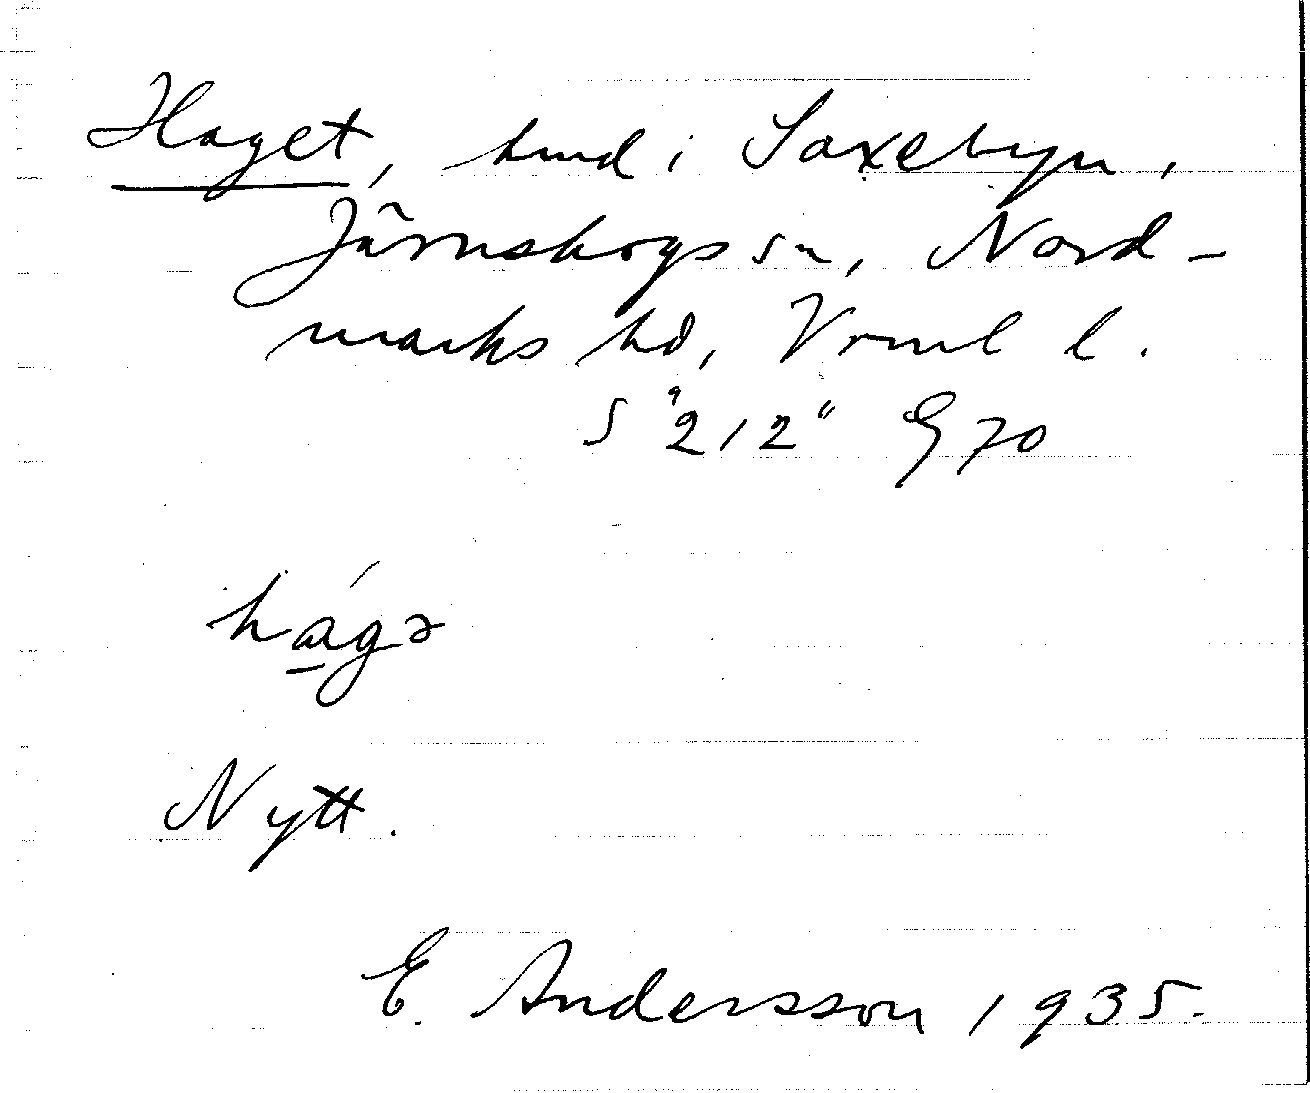 Haget, hmd i Saxebyn,
Järnskogs sn, Nord-
marks hd, Vrml l.
S "212" G 70
hágə
Nytt.
E. Andersson 1935.